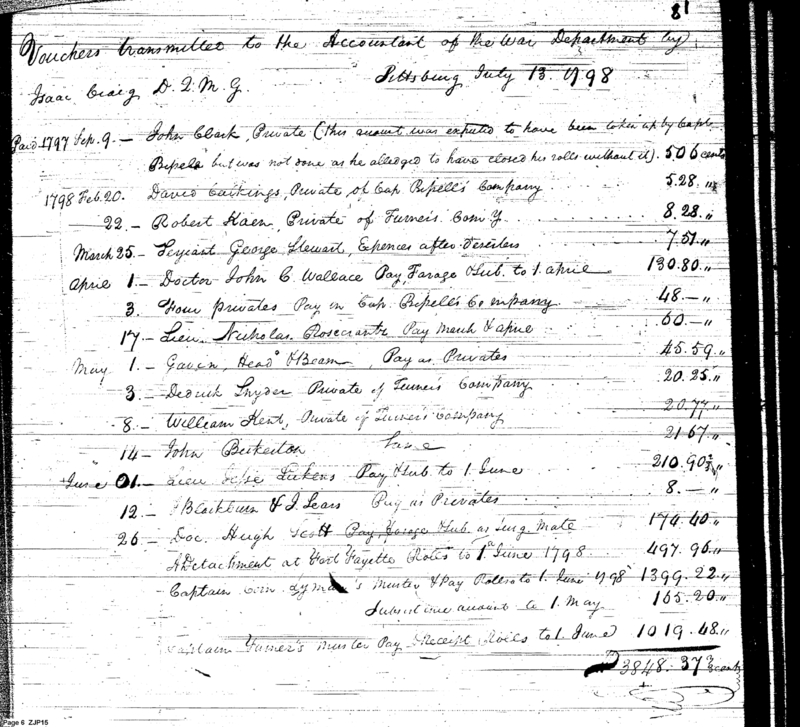 81
Vouchers transmitted to the Accountant of the War Department by
Isaac Craig D. Q. M. G Pittsburg July 13. 1798
Paid 1797 Sep. 9. — John Clark, Private (this amount was expected to have been taken up by Capt.
but was not done as he alleged to have closed his rolls without it). 5.06 cents
1798 Feb. 20. David Private, of Cap. Company 5.28 "
22. — Robert Private of Turners Com'y 8.28 "
March 25. — Serjeant George Stewart, Expences after Deserters 7.51 "
April 1. — Doctor John C. Wallace Pay, Forage & Sub. to 1. april 130.80 "
3. Four privates Pay in Cap. Company 48. — "
17. — Lieu. Nicholas Rosecrantz Pay March & aprie 60 — "
May 1. — Gaven, Head & Beam, Pay as Privates 45.59 "
3. — Dedrick Snyder Private of Turners Company 20.25 "
8. — William Kent, Private of Turner's Company 20.77 "
14 — John Bickerton Same 21.67 "
June 01. — Lieu Jesse Lukens Pay & Sub. to 1. June 210.90 "
12. — Blackburn & J. Sears Pay as Privates 8. — "
26 — Doc. Hugh Scott Pay Forage & Sub. as Surg. Mate 174.40 "
A Detachment at Fort Fayette Roles to 1 June 1798 497.96 "
Captain Corn. Lyman's Muster & Pay Roles to 1. June 1798 1399.22 "
Subsistence amount to 1. May 165.20 "
Captain Turner's Muster Pay & Receipt Roles to 1. June 1019.48 "
3848.37 cents
Page 6 ZJP15